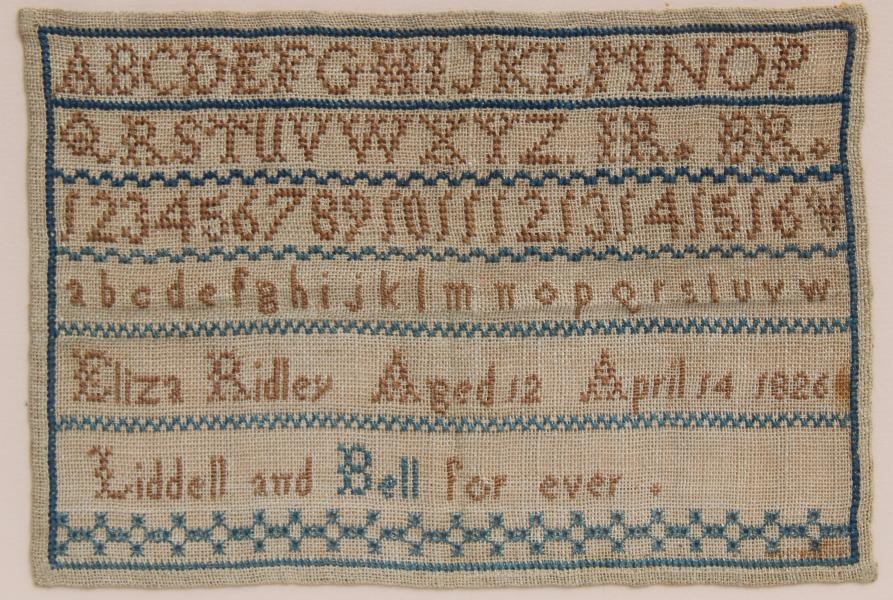 ABCDEFGHIJKLMNOP
QRSTUVWXYZ IR. BR.
12345678910111213141516
abcdefghijklmnopqrstuvw
Eliza Ridley Aged 12 April 14 1826
Liddell and Bell for ever .